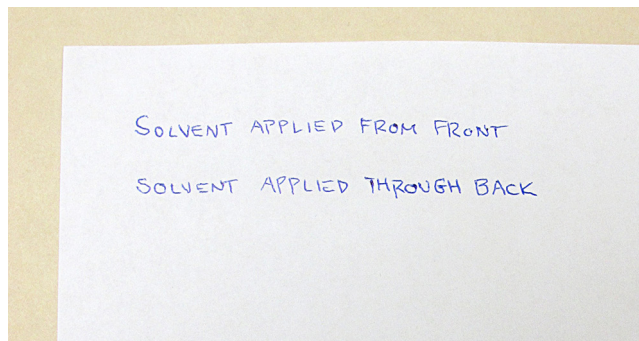 SOLVENT APPLIED FROM FRONT
SOLVENT APPLIED THROUGH BACK